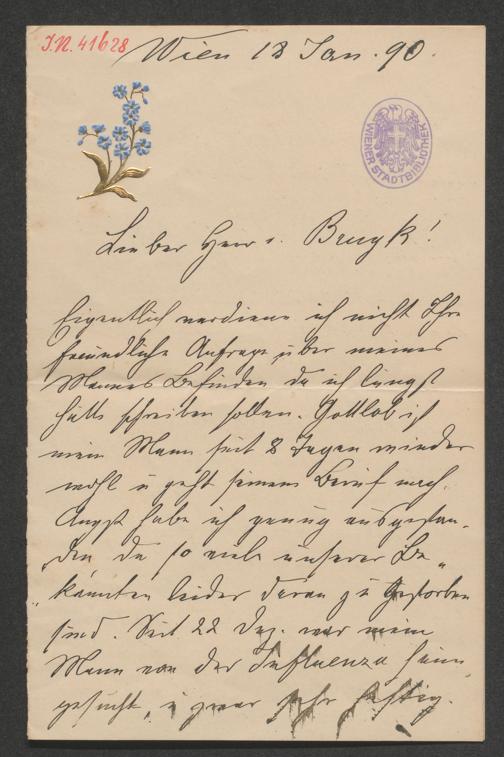 I.N. 41628
Wien 18 Jan. 90.
WIENER STADTBIBLIOTHEK
Lieber Herr v. Bruyk!
Eigentlich verdiene ich nicht Ihre
freundliche Anfrage über meines
Mannes Befinden da ich längst
hätte schreiben sollen. Gottlob ist
mein Mann seit 8 Tagen wieder
wohl u geht seinem Beruf nach.
Angst habe ich genug ausgestan-
den da so viele unserer Be-
kannten leider daran gestorben
sind. Seit 22 Dez. war mein
Mann von der Influenza heim
gesucht, u zwar sehr heftig.